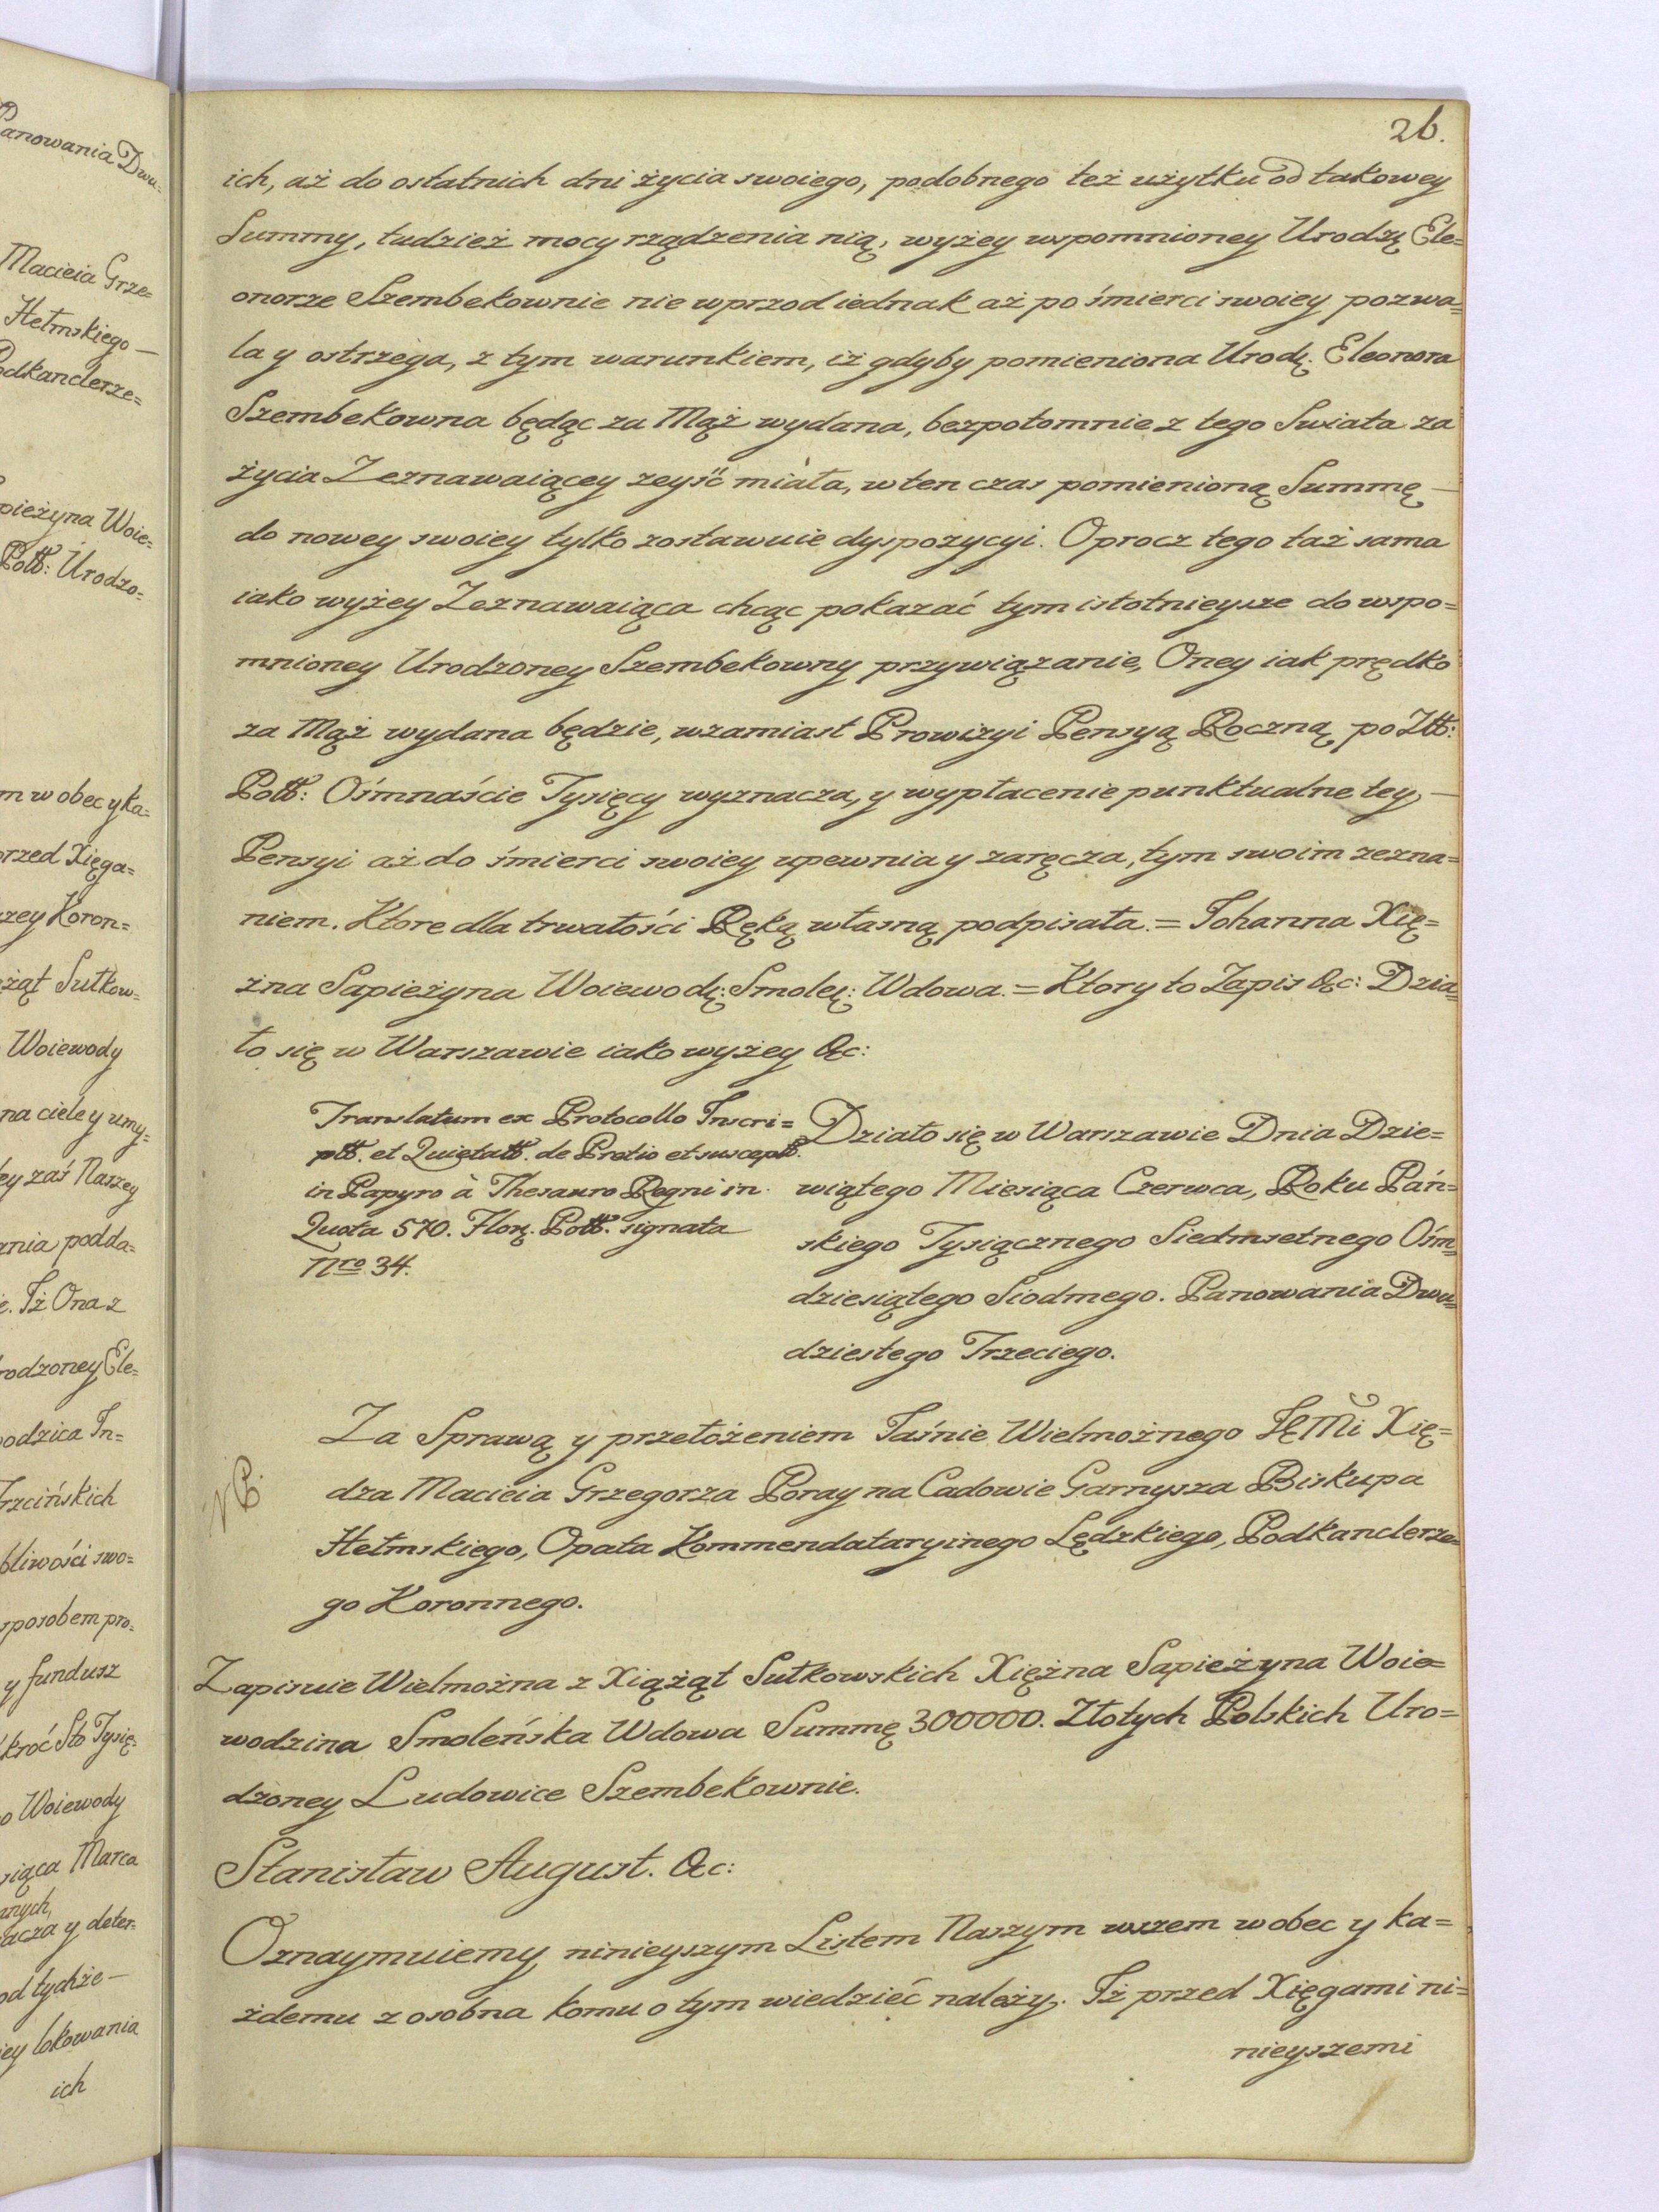 Panowania Dwu=
Macieia Grze=
Hełmskiego —
odkanclerze=
pieżyna Woie=
Poltt: Urodzo=
m w obec y ka=
rzed Xięga=
zey Koron=
żąt Sułkow=
Woiewody
na ciele y umy=
ey zaś Naszey
ania podda=
e. Iż Ona z
rodzoney Ele=
odzica In=
Trzcińskich
bliwości swo=
sposobem pro=
y fundusz
kroć Sto Tysię=
o Woiewody
siąca Marca
nych,
acza y deter=
od tychże —
iey lokowania
ich
26.
ich, aż do ostatnich dni życia swoiego, podobnego też użytku od takowey
Summy, tudzież mocy rządzenia nią, wyżey wspomnioney Urodzę Ele=
onorze Szembekownie nie wprzod iednak aż po śmierci swoiey pozwa=
la y ostrzega, z tym warunkiem, iż gdyby pomieniona Urodę. Eleonora
Szembekowna będąc za Mąż wydana, bezpotomnie z tego Swiata za
życia Zeznawaiącey zeyść miała, w ten czas pomienioną Summę —
do nowey swoiey tylko zostawuie dyspozycyi. Oprocz tego taż sama
iako wyżey Zeznawaiąca chcąc pokazać tym istotnieysze do wspo=
mnioney Urodzoney Szembekowny przywiązanie, Oney iak prędko
za Mąż wydana będzie, wzamiast Prowizyi Pensyą Roczną po Ztt:
Poltt: Ośmnaście Tysięcy wyznacza, y wypłacenie punktualne tey, —
Pensyi aż do śmierci swoiey upewnia y zaręcza, tym swoim zezna=
niem. Ktore dla trwałości Ręką własną podpisała. = Johanna Xię=
żna Sapieżyna Woiewodę: Smolę: Wdowa. = Ktory to Zapis &c: Dzia=
ło się w Warszawie iako wyżey &c:
Translatum ex Protocollo Inscri=
ptt. et Quietatt. de Pretio et suscept.
in Papyro à Thesauro Regni in
Quota 570. Florę. Poltt. signata
Nro 34.
Działo się w Warszawie Dnia Dzie=
wiątego Miesiąca Czerwca, Roku Pań=
skiego Tysiącznego Siedmsetnego Ośm=
dziesiątego Siodmego. Panowania Dwu=
dziestego Trzeciego.
NB.
Za Sprawą y przełożeniem Jaśnie Wielmożnego JĘMi Xię=
dza Macieia Grzegorza Poray na Cadowie Garnysza Biskupa
Hełmskiego, Opata Kommendataryinego Lędzkiego, Podkanclerze=
go Koronnego.
Zapisuie Wielmożna z Xiążąt Sułkowskich Xiężna Sapieżyna Woie=
wodzina Smoleńska Wdowa Summę 300000. Złotych Polskich Uro=
dzoney Ludowice Szembekownie.
Stanisław August. &c:
Oznaymuiemy ninieyszym Listem Naszym wszem wobec y ka=
żdemu z osobna komu o tym wiedzieć należy. Iż przed Xięgami ni=
nieyszemi